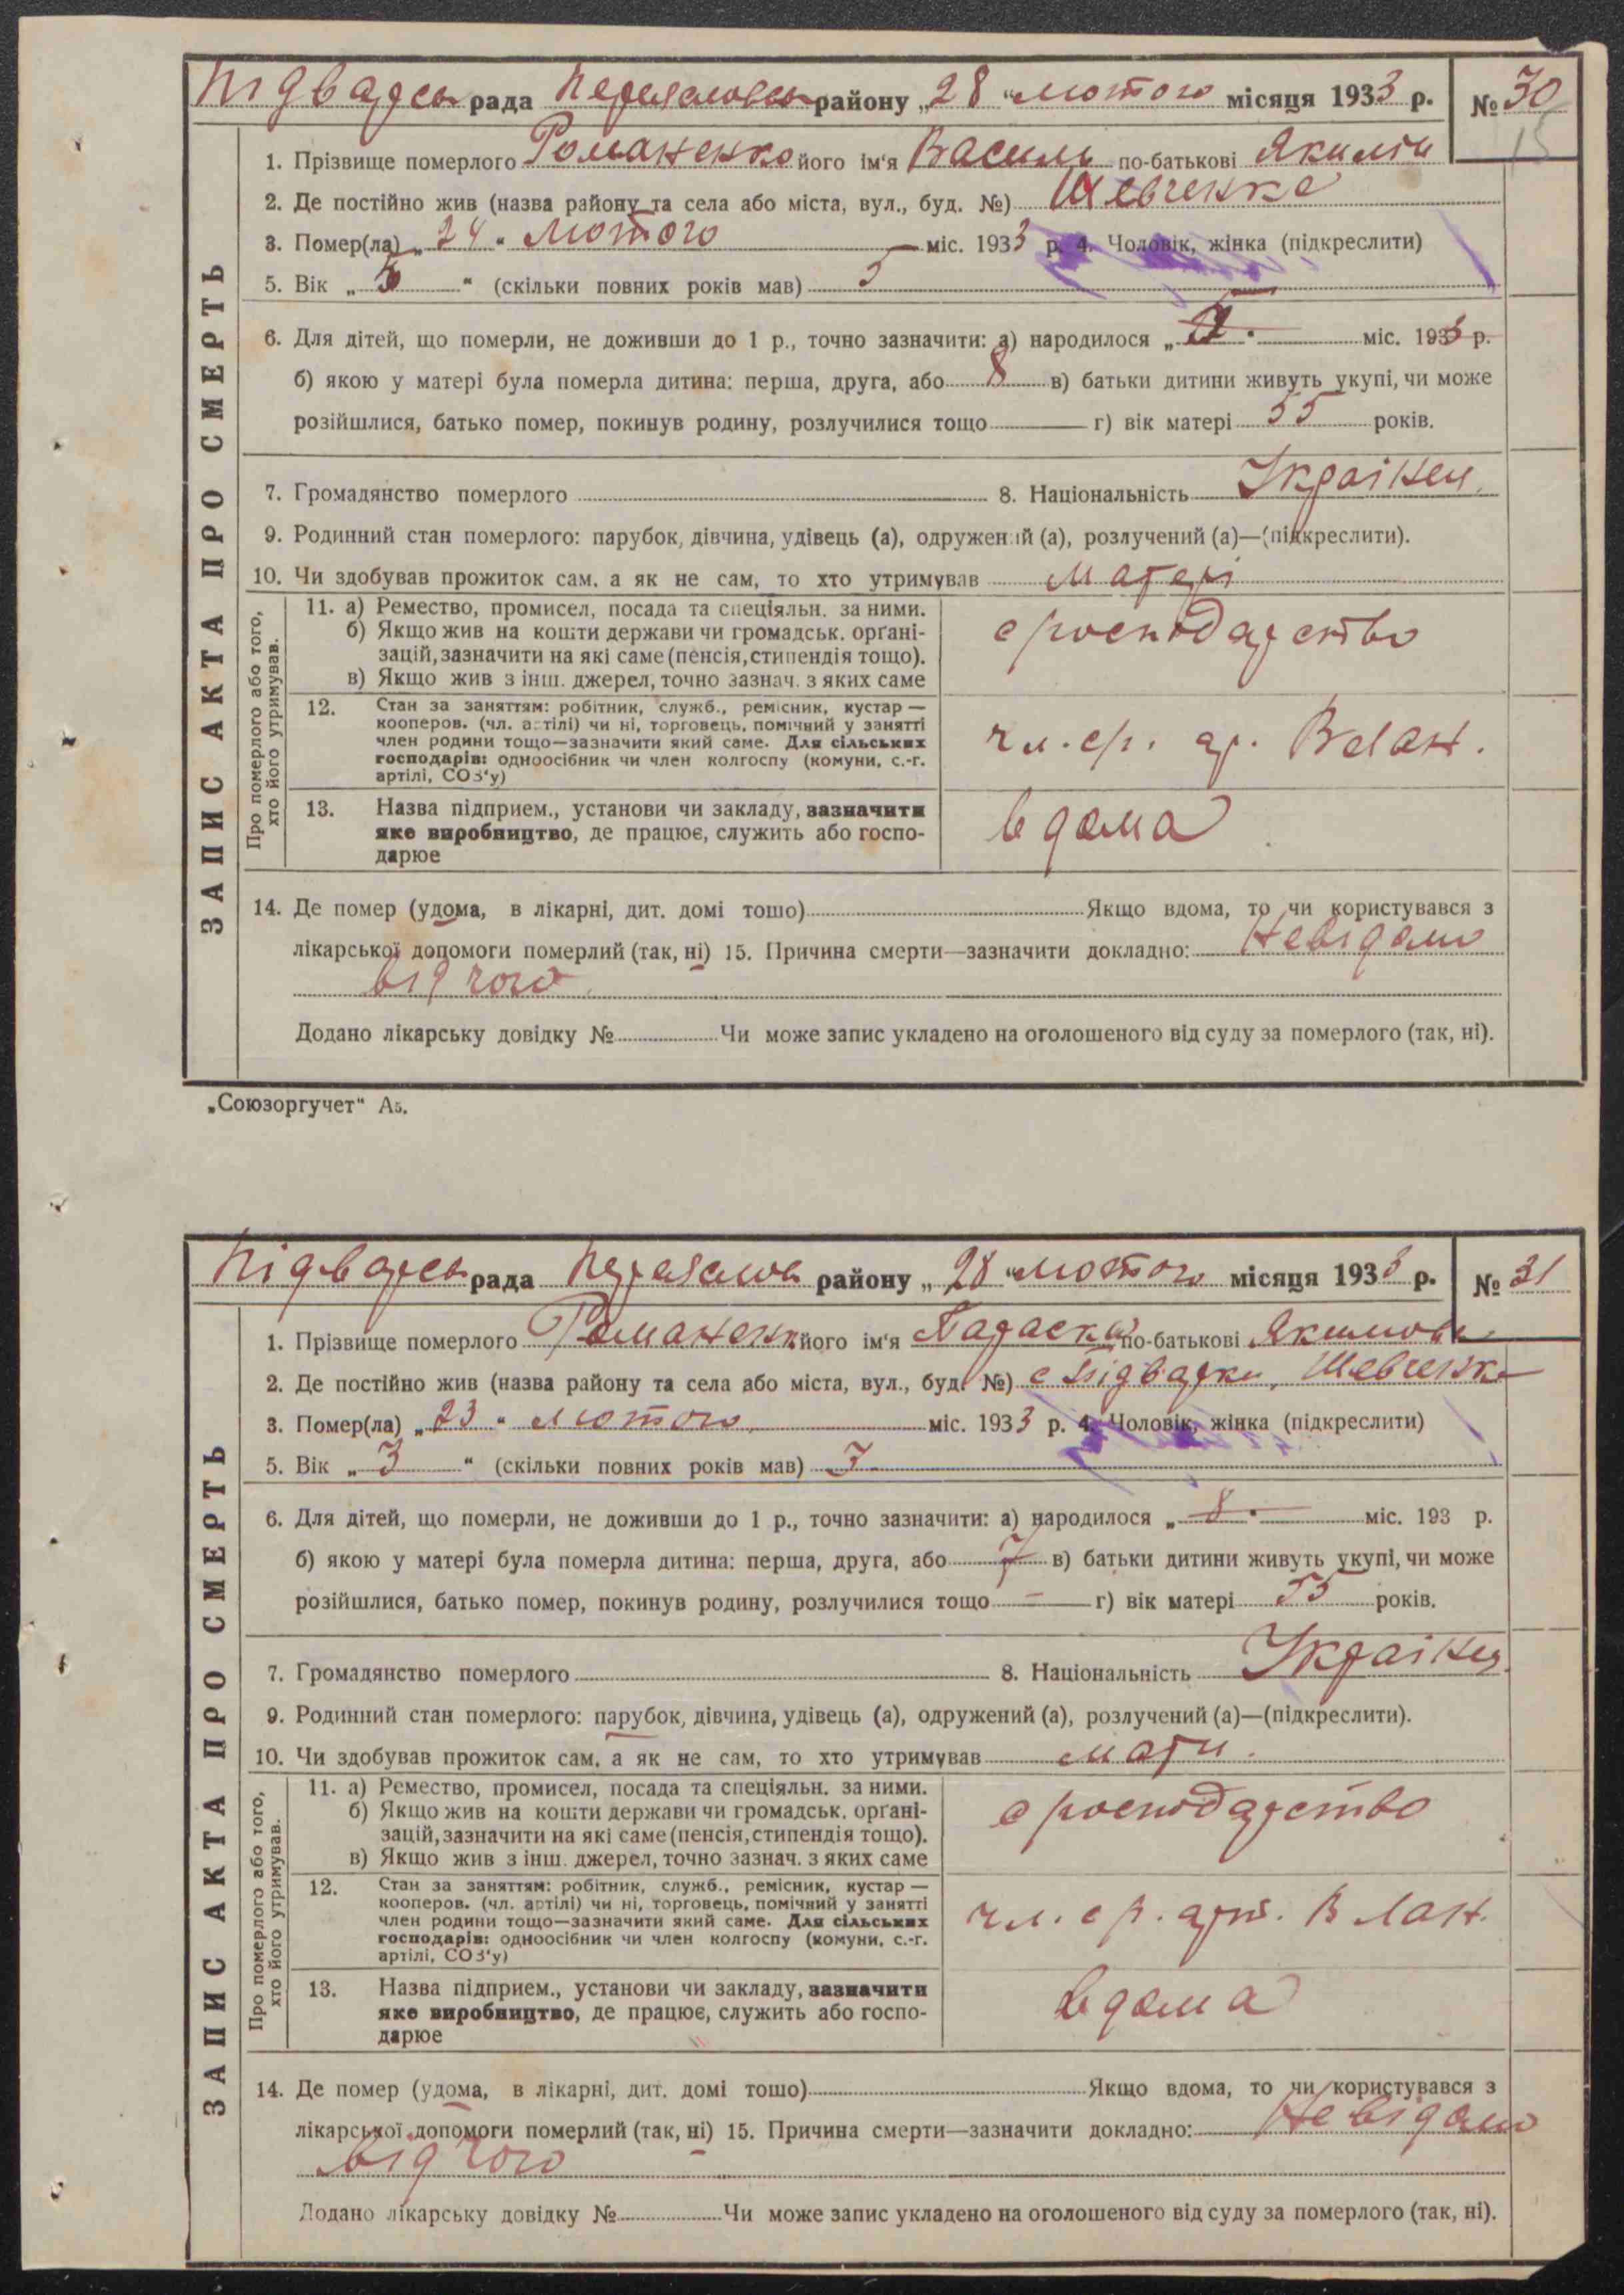 Підварськ рада Переяславськ района „28“ лютого місяця 1933 р. № 30
15
1. Прізвище померлого Романенко його ім'я Василь по-батькові Якимів
2. Де постійно жив (назва району та села або міста, вул., буд. №) Шевченка
3. Помер(ла) „24“ лютого міс. 1933 р. 4. Чоловік, жінка (підкреслити)
5. Вік „5“ (скільки повних років мав) 5
6. Для дітей, що померли, не доживши до 1 р., точно зазначити: а) народилося „ “ міс. 1933 р.
б) якою у матері була померла дитина: перша, друга, або 8 в) батьки дитини живуть укупі, чи може
розійшлися, батько помер, покинув родину, розлучилися тощо г) вік матері 35 років.
7. Громадянство померлого 8. Національність Українец
9. Родинний стан померлого: парубок, дівчина, удівець (а), одружений (а), розлучений (а)—(підкреслити).
10. Чи здобував прожиток сам, а як не сам, то хто утримував матері
11. а) Ремество, промисел, посада та спеціяльн. за ними.
б) Якщо жив на кошти держави чи громадськ. орґані-
зацій, зазначити на які саме (пенсія, стипендія тощо).
в) Якщо жив з інш. джерел, точно зазнач. з яких саме
с господарство
12. Стан за заняттям: робітник, служб., ремісник, кустар—
кооперов. (чл. артілі) чи ні, торговець, помічний у занятті
член родини тощо—зазначити який саме. Для сільських
господарів: одноосібник чи член колгоспу (комуни, с.-г.
артілі, СОЗ'у)
чл. с/г. ар. В лан.
13. Назва підприєм., установи чи закладу, зазначити
яке виробництво, де працює, служить або госпо-
дарюе
вдома
Про померлого або того,
хто його утримував.
14. Де помер (удома, в лікарні, дит. домі тощо) Якщо вдома, то чи користувався з
лікарської допомоги померлий (так, ні) 15. Причина смерти—зазначити докладно: Невідомо
від чого
Додано лікарську довідку № Чи може запис укладено на оголошеного від суду за померлого (так, ні).
ЗАПИС АКТА ПРО СМЕРТЬ
„Союзоргучет“ А5.
Підварськ рада Переяслов району „28“ лютого місяця 1933 р. № 31
1. Прізвище померлого Романенк його ім'я Параска по-батькові Якимовн
2. Де постійно жив (назва району та села або міста, вул., буд. №) с Підварки, Шевченка
3. Помер(ла) „23“ лютого міс. 1933 р. 4. Чоловік, жінка (підкреслити)
5. Вік „3“ (скільки повних років мав) 3
6. Для дітей, що померли, не доживши до 1 р., точно зазначити: а) народилося „8“ міс. 193 р.
б) якою у матері була померла дитина: перша, друга, або 7 в) батьки дитини живуть укупі, чи може
розійшлися, батько помер, покинув родину, розлучилися тощо г) вік матері 35 років.
7. Громадянство померлого 8. Національність Українец
9. Родинний стан померлого: парубок, дівчина, удівець (а), одружений (а), розлучений (а)—(підкреслити).
10. Чи здобував прожиток сам, а як не сам, то хто утримував мати.
11. а) Ремество, промисел, посада та спеціяльн. за ними.
б) Якщо жив на кошти держави чи громадськ. орґані-
зацій, зазначити на які саме (пенсія, стипендія тощо).
в) Якщо жив з інш. джерел, точно зазнач. з яких саме
с господарство
12. Стан за заняттям: робітник, служб., ремісник, кустар—
кооперов. (чл. артілі) чи ні, торговець, помічний у занятті
член родини тощо—зазначити який саме. Для сільських
господарів: одноосібник чи член колгоспу (комуни, с.-г.
артілі, СОЗ'у)
чл. с г. арт. В лан.
13. Назва підприєм., установи чи закладу, зазначити
яке виробництво, де працює, служить або госпо-
дарюе
вдома
Про померлого або того,
хто його утримував.
14. Де помер (удома, в лікарні, дит. домі тощо) Якщо вдома, то чи користувався з
лікарської допомоги померлий (так, ні) 15. Причина смерти—зазначити докладно: Невідомо
від чого
Додано лікарську довідку № Чи може запис укладено на оголошеного від суду за померлого (так, ні).
ЗАПИС АКТА ПРО СМЕРТЬ